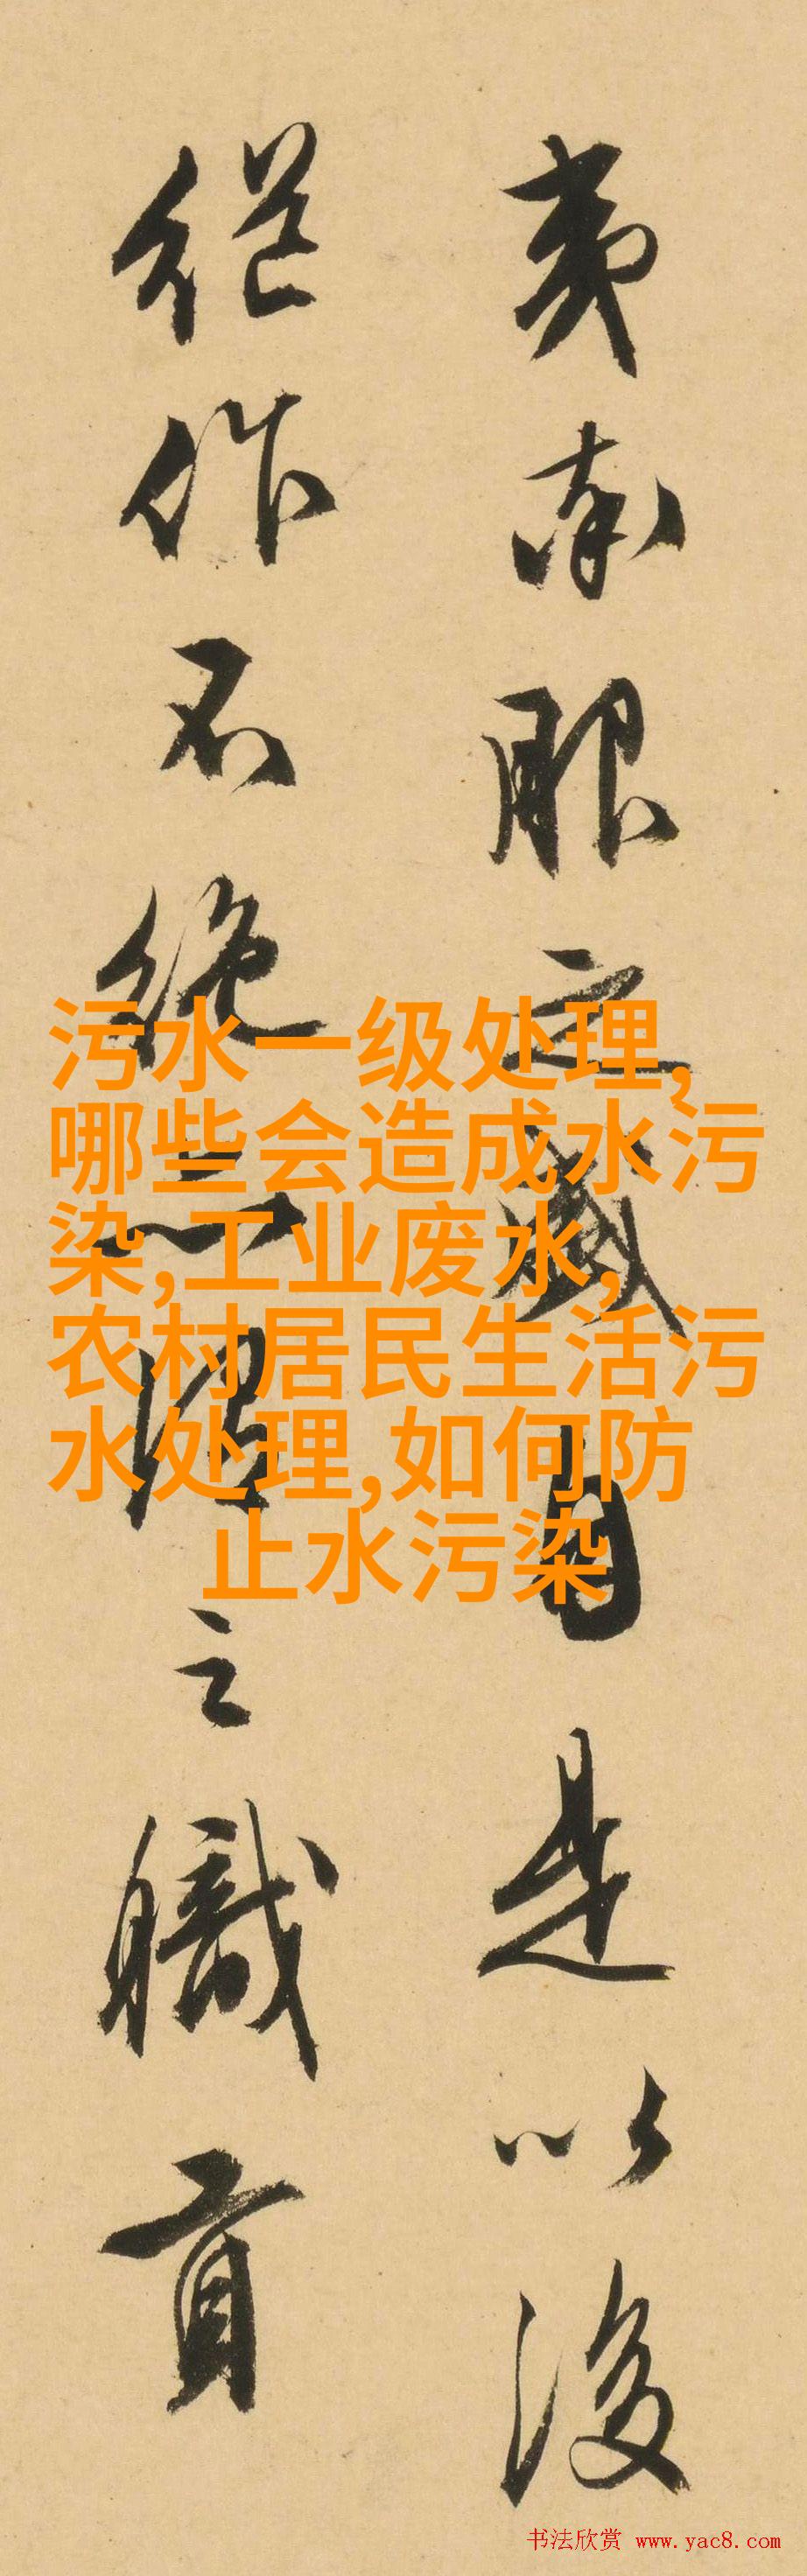 夷服之盛自是以後
绝作不絶之職貢
污水一级处理,
哪些会造成水污
染,工业废水,
农村居民生活污
水处理,如何防
止水污染
书法欣赏 www.yac8.com